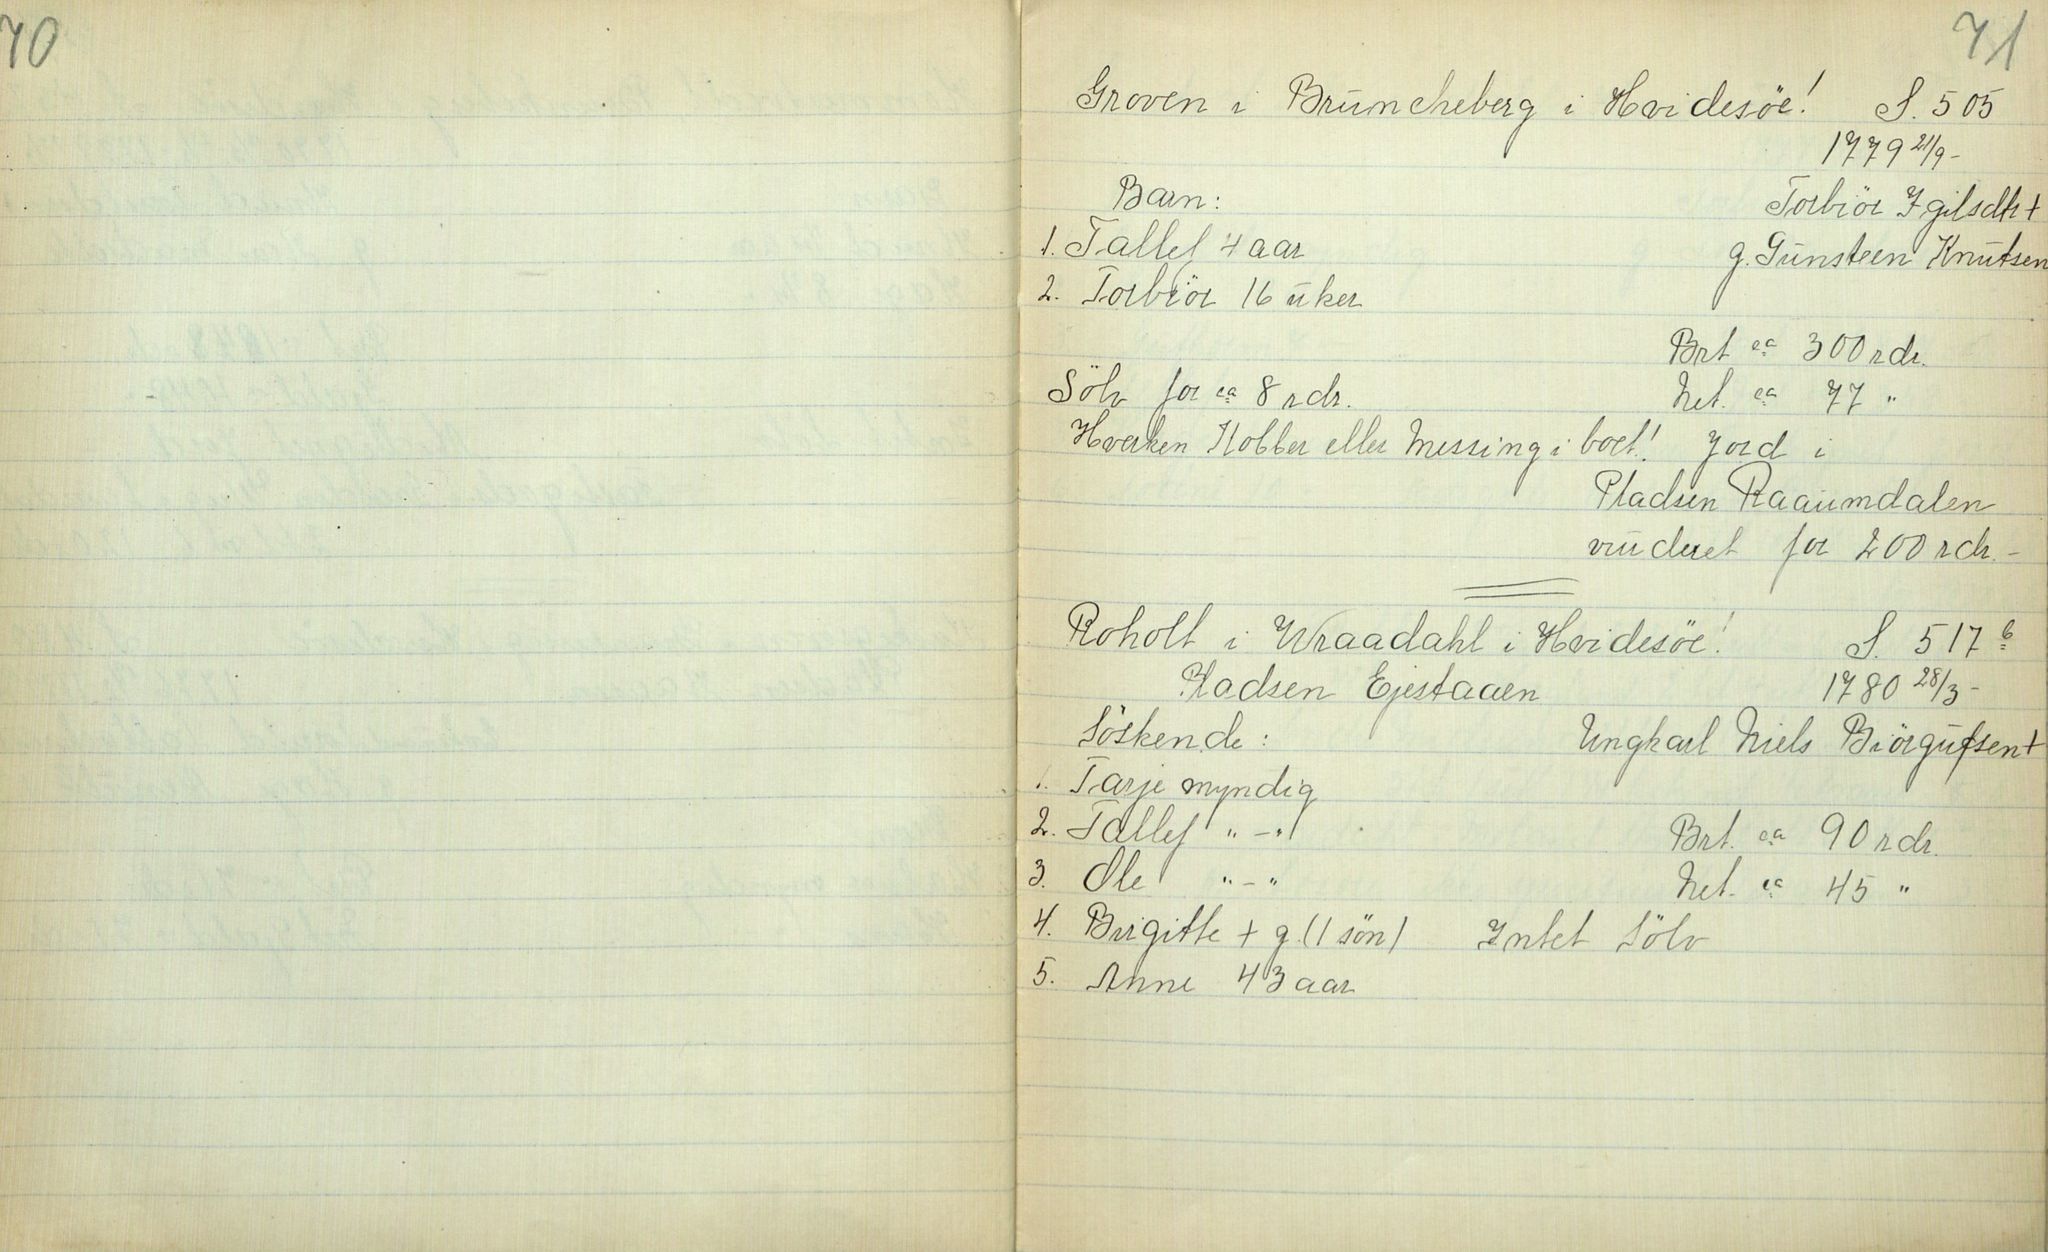 70
71
Groven i Bruncheberg i Hvidesöe! S. 505
1779 21/9-
Barn: Torbiör Igilsdtr +
1. Tallef 4 aar g. Gunsteen Knutsen
2. Torbiör 16 uker
Brt ca 300 rdr.
Sölv for ca 8 rdr. Net. ca 77 "
Hverken Kobber eller Messing i boet! Jord i
Pladsen Raaumdalen
vurderet for 200 rdr. -
Roholt i Wraadahl i Hvidesöe! S. 517 b
Pladsen Ejestaaen 1780 28/3-
Söskende: Ungkarl Niels Biörgufsen +
1. Tarje myndig
2. Tallef " - " Brt. ca 90 rdr.
3. Ole " - " Net. ca 45 "
4. Birgitte + g. (1 sön) Intet Sölv
5. Anne 43 aar